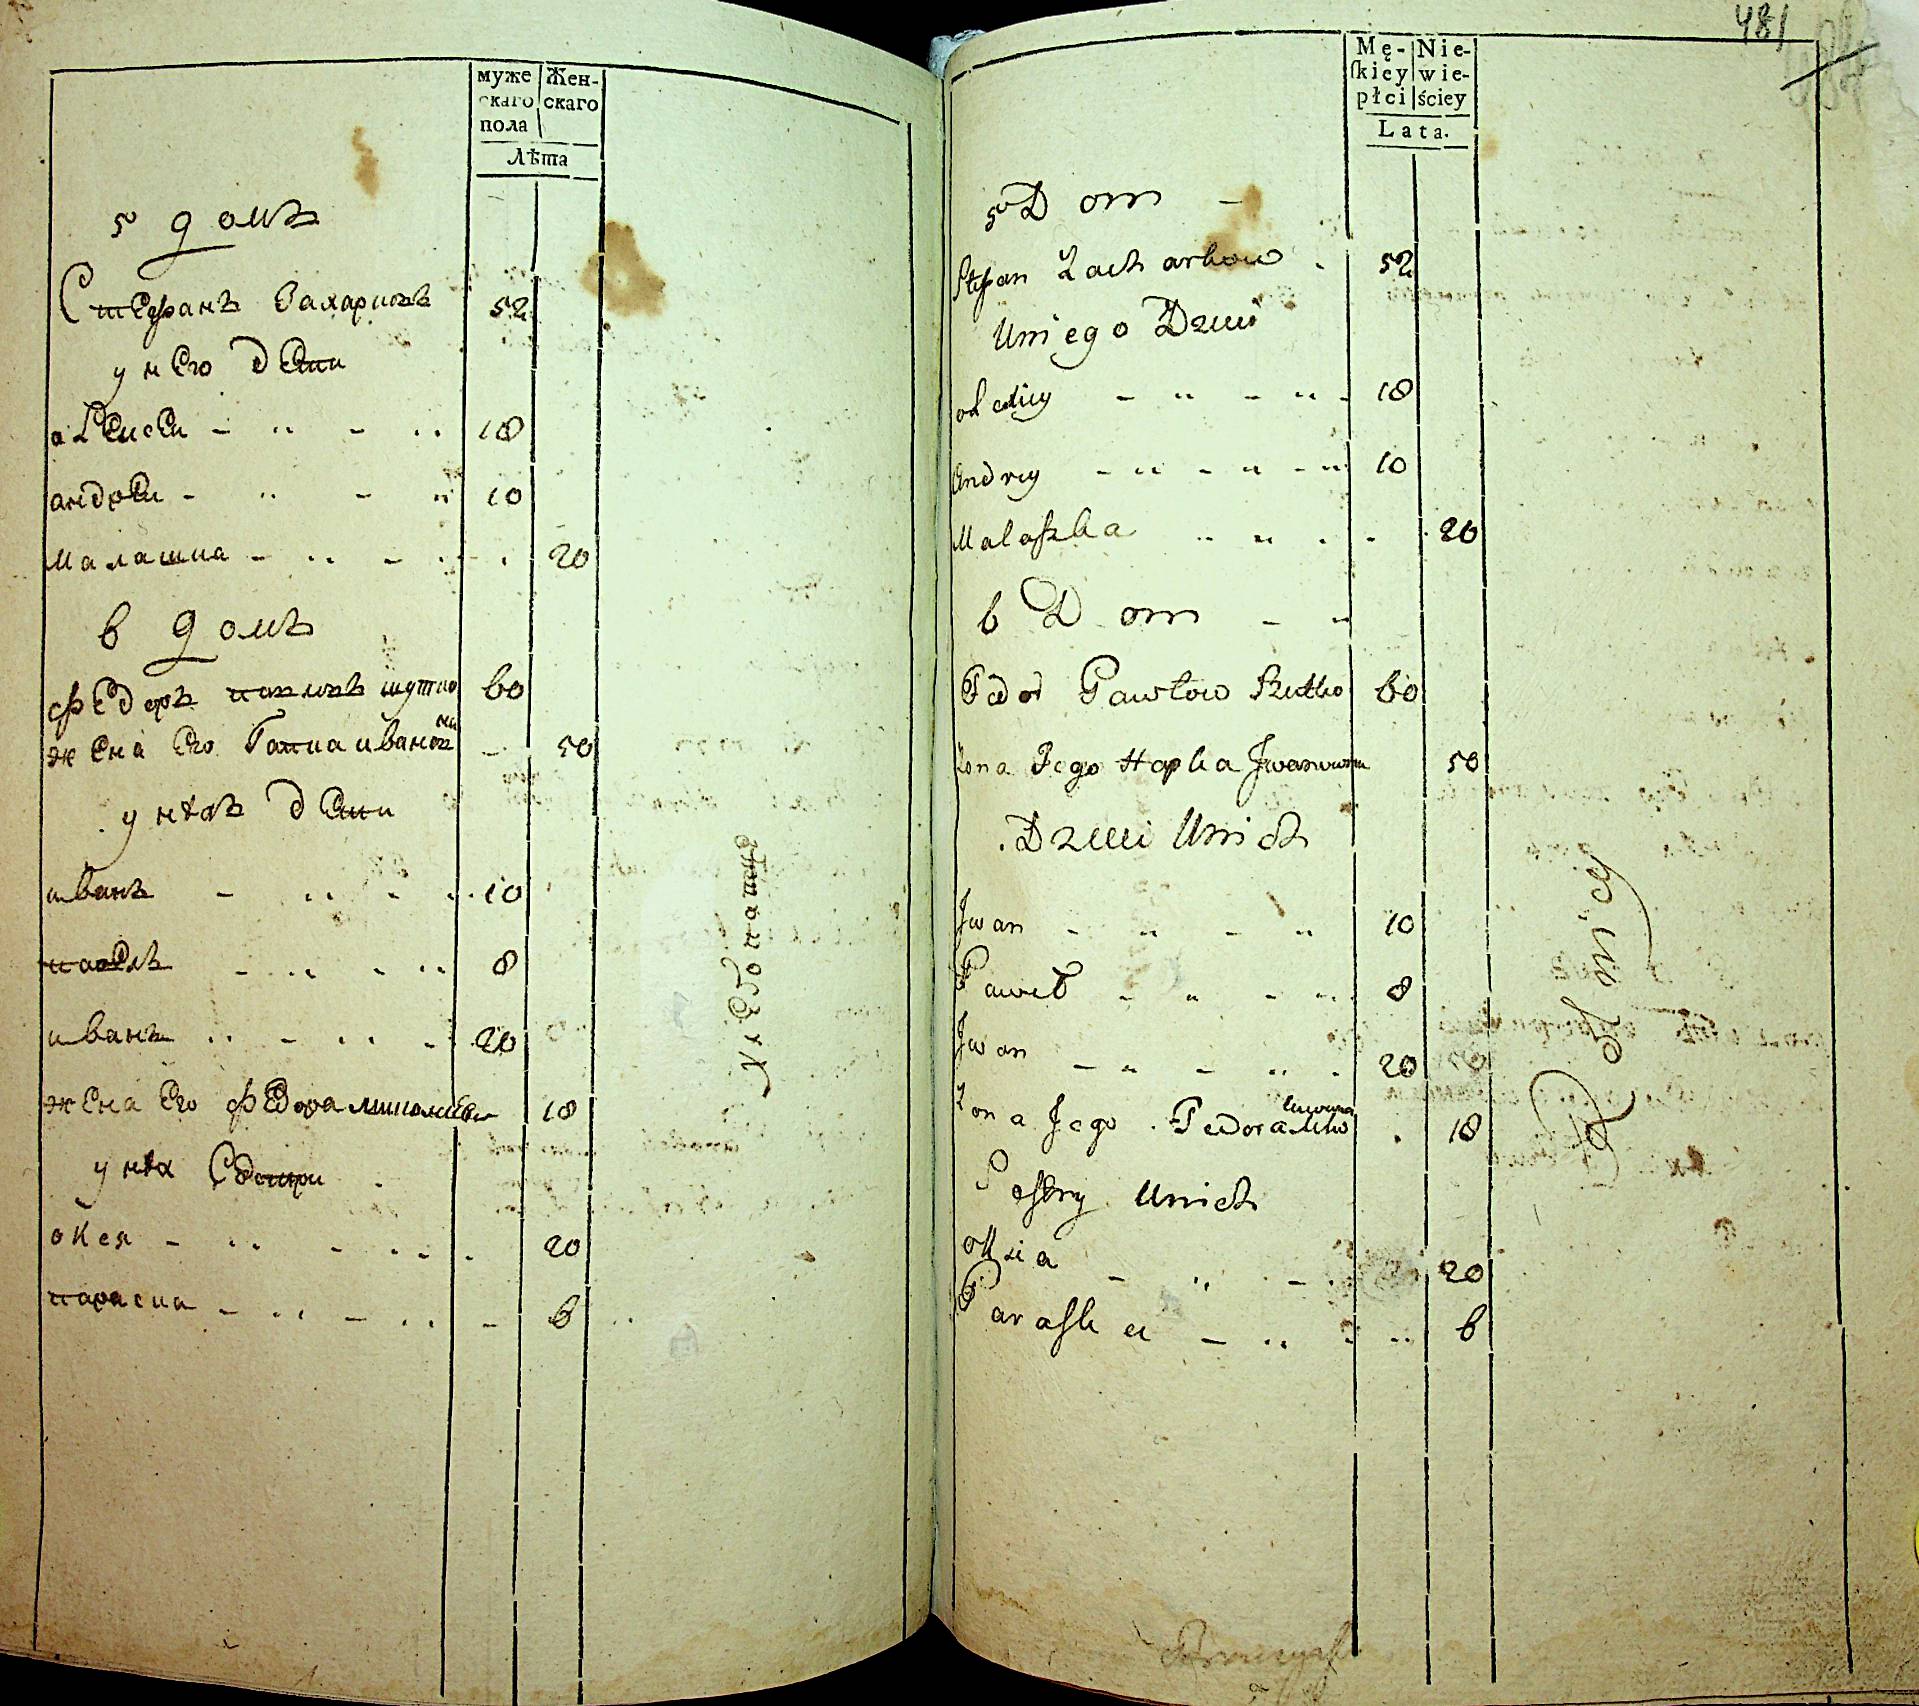 муже Жен-
скаго скаго
пола
Лѣта
5 домъ
Стефанъ Захариовъ 52
у него дети
алеисеи 18
андреи 10
малашка 20
6 домъ
федоръ павловъ шутко 60
жена Его Гапка иванов на 50
у нихъ дети
иванъ 10
павелъ 8
иванъ 20
жена Его федора 18
у них Сестри
оксея 20
параска 6
481
Mę- Nie-
ſkiey wie-
płci ściey
Lata.
5 Dom
Stepan Zacharkow 52
U niego Dzieci
olexiey 18
Andrey 10
Malaszka 20
6 Dom
Fedor Pawłow Szutko 60
Zona Jego Hapka Jwanowna 50
Dzieci U nich
Jwan 10
Paweł 8
Jwan 20
Zona Jego Fedora 18
Sestry U nich
oxia 20
Paraska 6